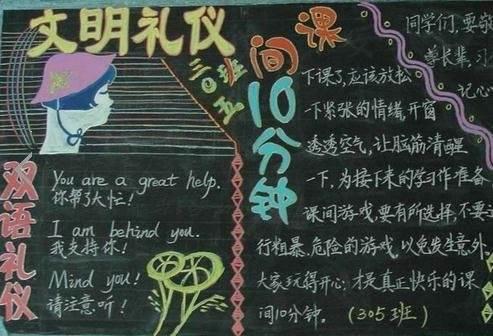 文明礼仪
三〇五班
双语礼仪
You are a great help.
你帮了大忙!
I am behind you.
我支持你!
Mind you!
请注意听!
课间10分钟
下课了,应该放松
一下紧张的情绪,开窗
透透空气,让脑筋清醒
一下,为接下来的学习作准备
课间游戏,要有所选择,不要
行粗暴、危险的游戏,以免发生意外
大家玩得开心,才是真正快乐的课
间10分钟。(305班)
同学们,要敬
学长辈,习
记心